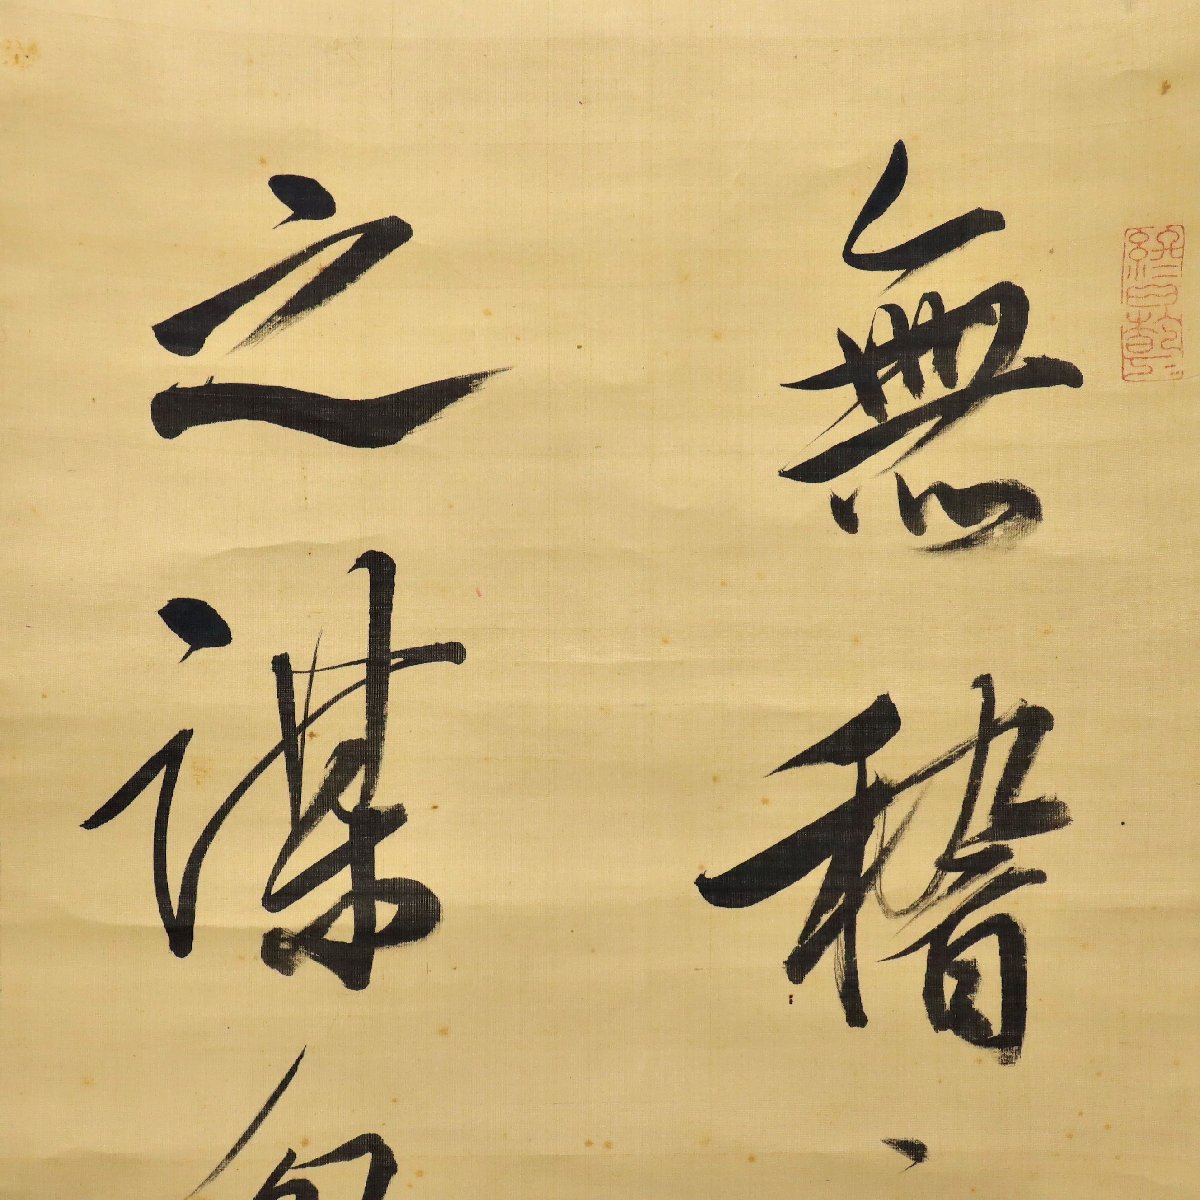 無稽
之謀勿